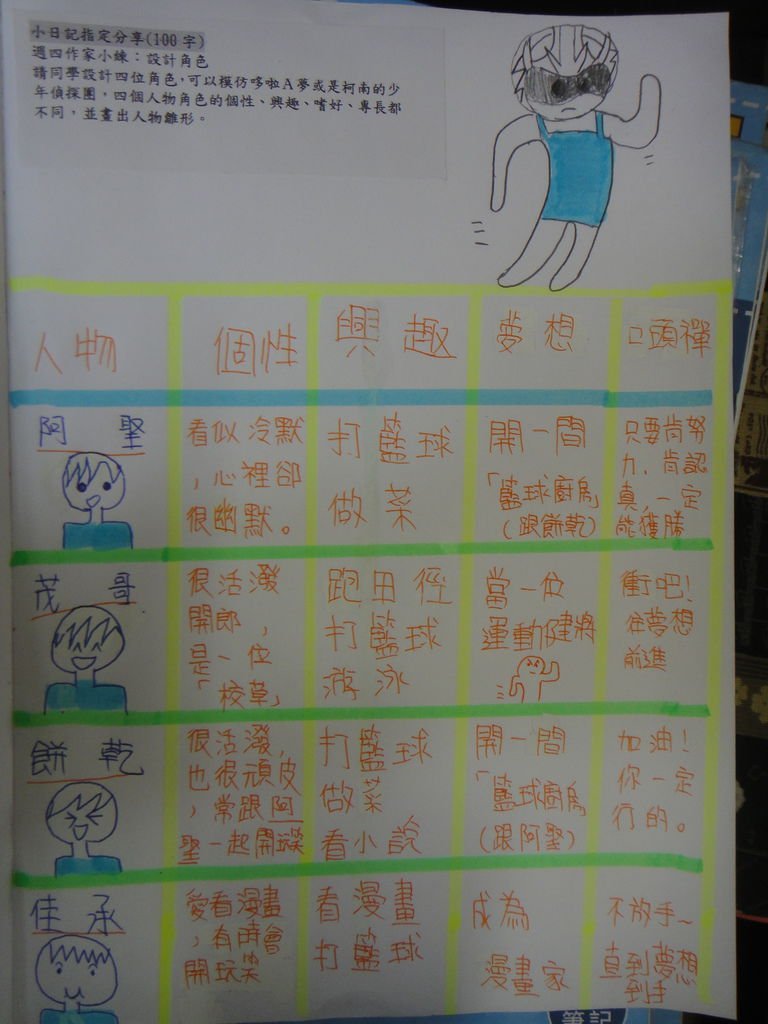 小日記指定分享(100字)
週四作家小練：設計角色
請同學設計四位角色，可以模仿哆啦A夢或是柯南的少
年偵探團，四個人物角色的個性、興趣、嗜好、專長都
不同，並畫出人物雛形。
人物 個性 興趣 夢想 口頭禪
阿聖
看似冷默
，心裡卻
很幽默。
打籃球
做菜
開一間
「籃球廚房」
(跟餅乾)
只要肯努
力，肯認
真，一定
能獲勝
茂哥
很活潑
開郎，
是一位
「校草」
跑田徑
打籃球
游泳
當一位
運動健將
衝吧！
往夢想
前進
餅乾
很活潑，
也很頑皮
，常跟阿
聖一起開玩笑
打籃球
做菜
看小說
開一間
「籃球廚房」
(跟阿聖)
加油！
你一定
行的。
佳承
愛看漫畫
，有時會
開玩笑
看漫畫
打籃球
成為
漫畫家
不放手~
直到夢想
到手
筆記